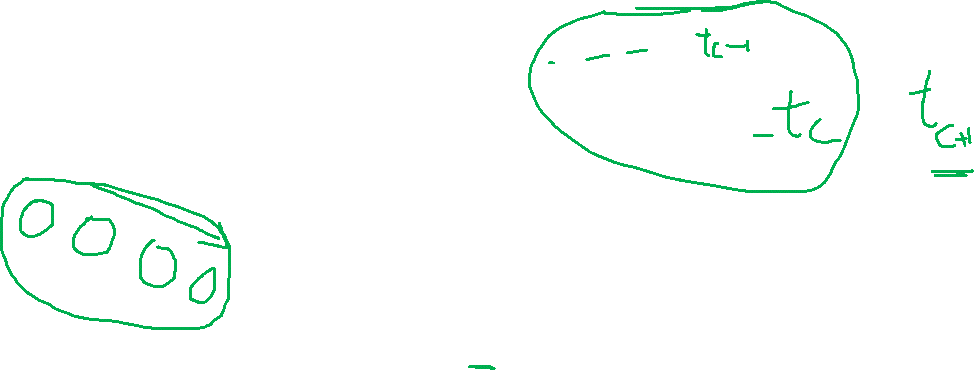 - - - t_{c-1}
- t_c t_{c+1}